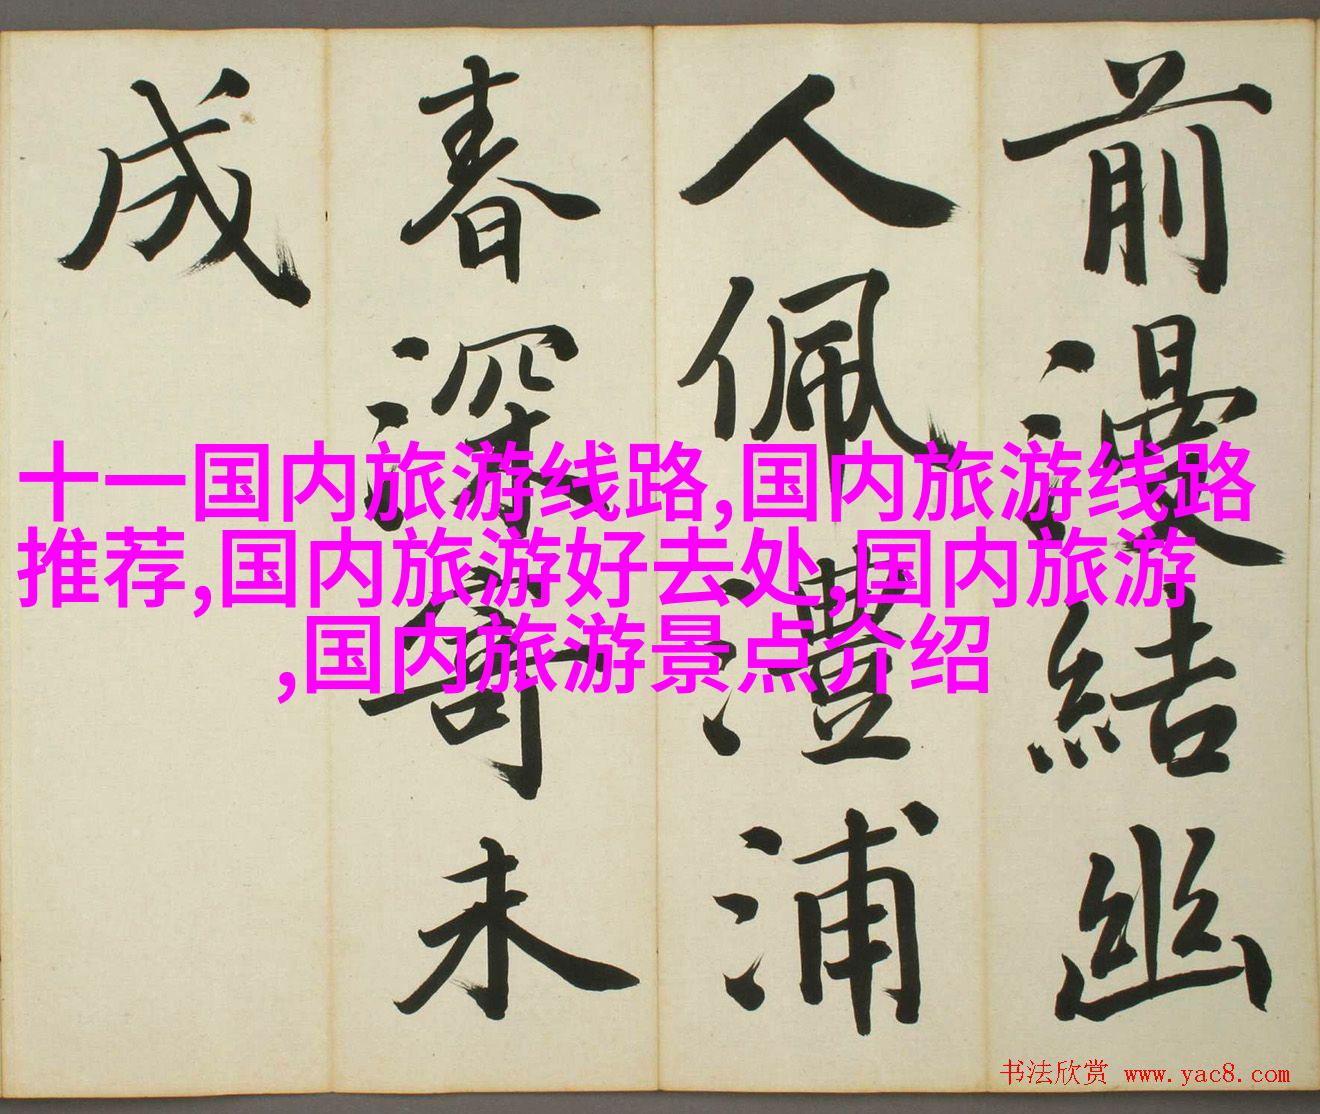 前漫結幽
人佩澧浦
春深寄未
成
十一国内旅游线路,国内旅游线路
推荐,国内旅游好去处,国内旅游
,国内旅游景点介绍
书法欣赏 www.yac8.com